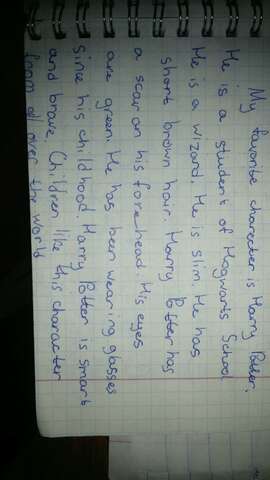 My favorite character is Harry Potter.
He is a student of Hogwarts School
He is a wizard. He is slim. He has
short brown hair. Harry Potter has
a scar on his forehead. His eyes
are green. He has been wearing glasses
since his childhood. Harry Potter is smart
and brave. Children like this character
from all over the world